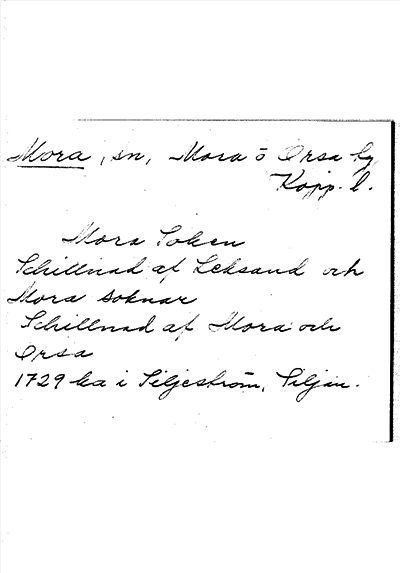 Mora, sn, Mora o Orsa hg,
Kopp. l.
Mora Soken
Schillnad af Leksand och
Mora soknar
Schillnad af Mora och
Orsa
1729 ka i Siljeström, Siljan.